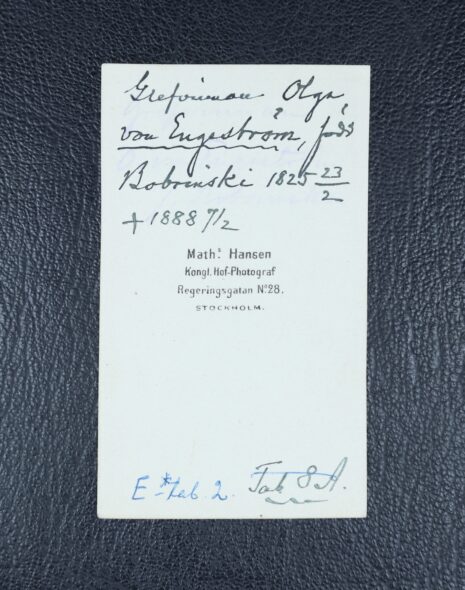 Grefvinnan Olga
von Engeström, född
Bobrinski 1825 23/2
+ 1888 7/2
Math.s Hansen
Kongl. Hof-Photograf
Regeringsgatan No28.
STOCKHOLM.
E * Tab. 2. Tab 8 A.